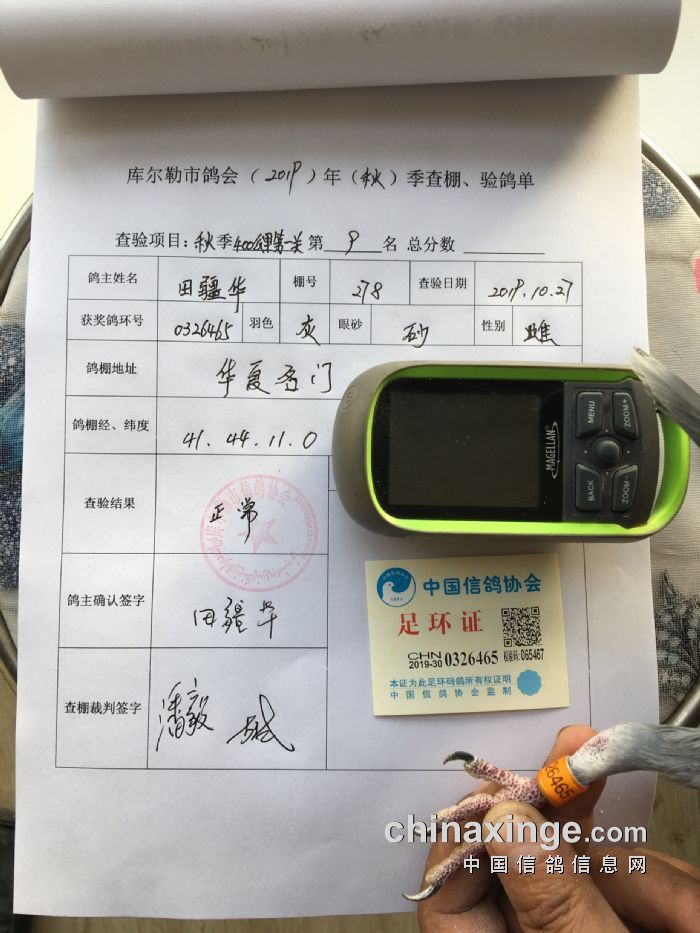 库尔勒市鸽会（2019）年（秋）季查棚、验鸽单
查验项目：秋季400公里第一关 第 9 名 总分数
鸽主姓名 田疆华 棚号 278 查验日期 2019.10.27
获奖鸽环号 0326465 羽色 灰 眼砂 砂 性别 雌
鸽棚地址 华夏名门
鸽棚经、纬度 41.44.11.0
查验结果 正常
库尔勒市信鸽协会
鸽主确认签字 田疆华
查棚裁判签字 潘毅
MAGELLAN
MENU
ZOOM+
BACK
ZOOM-
中国信鸽协会
足环证
CHN
2019-30 0326465 校验码: 065467
本证为此足环码鸽所有权证明
中国信鸽协会监制
26465
chinaxinge.com
中国信鸽信息网